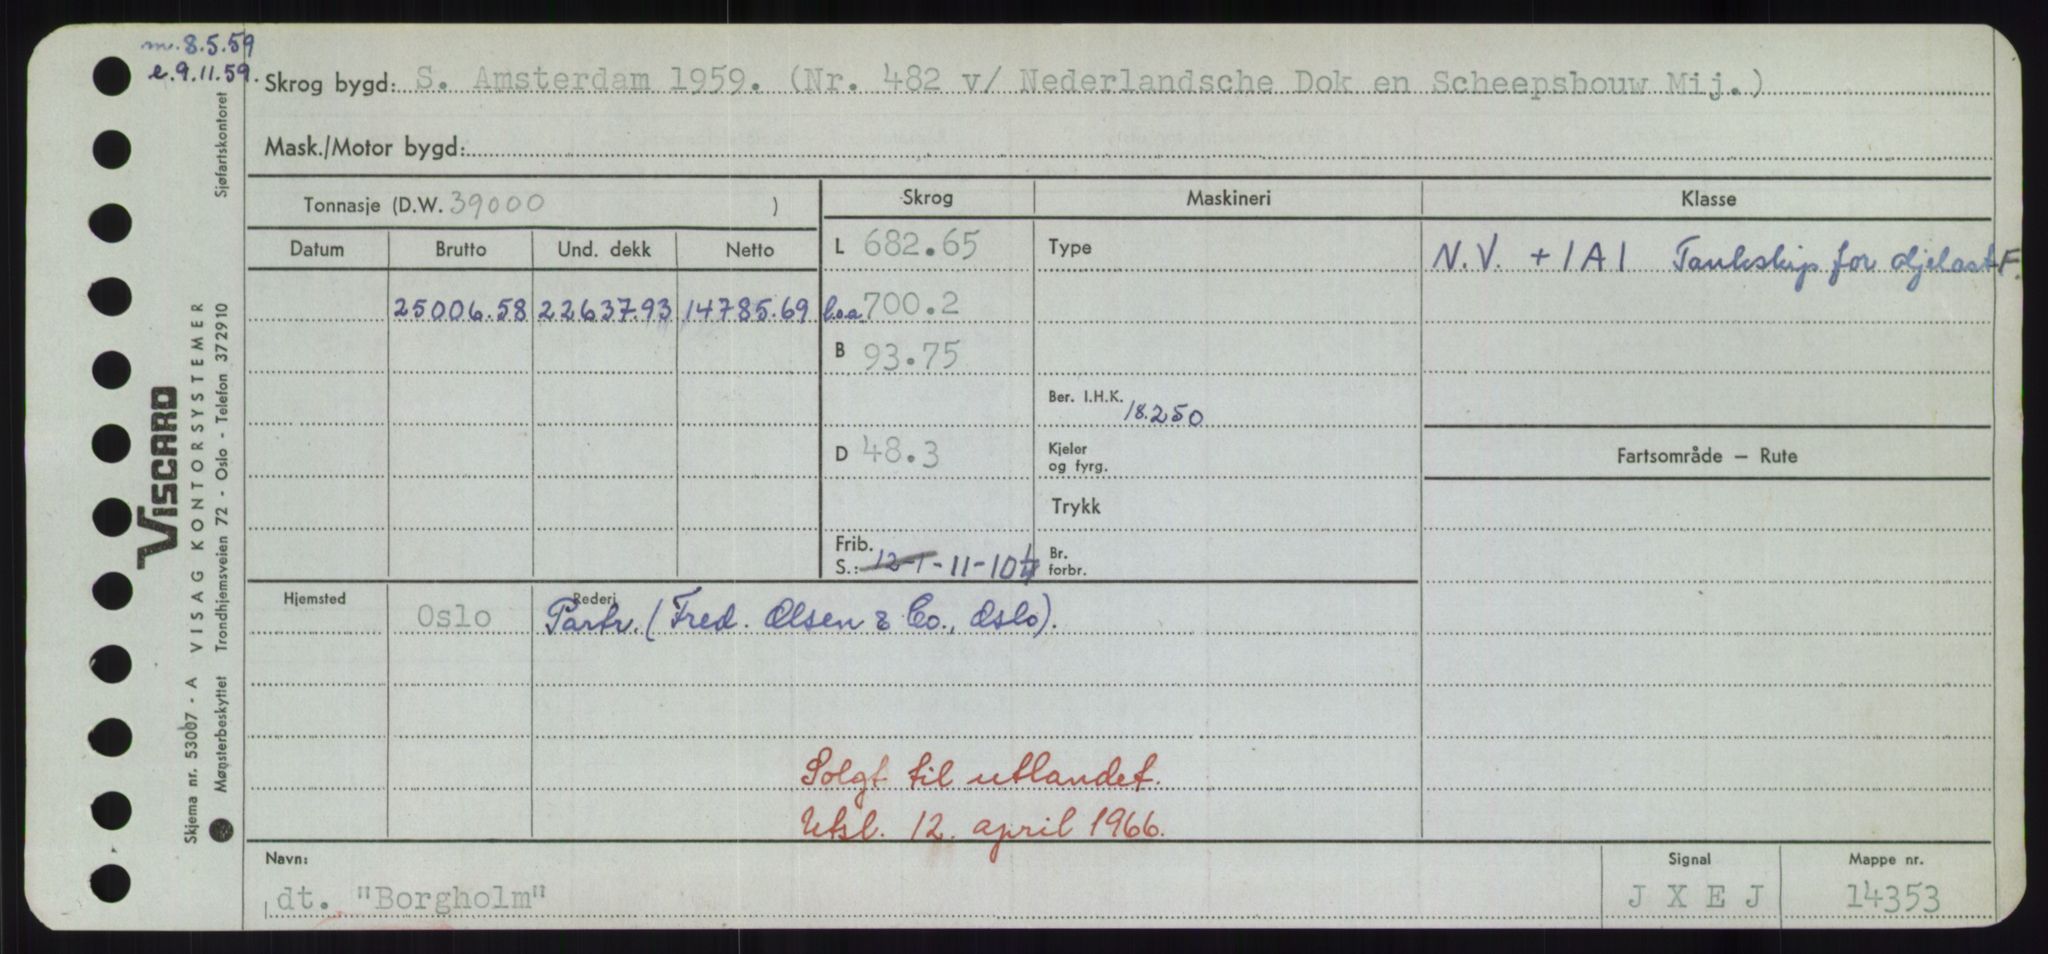 m. 8.5.59
e. 9.11.59.
Skrog bygd: S. Amsterdam 1959. (Nr. 482 v/ Nederlandsche Dok en Scheepsbouw Mij.)
Mask./Motor bygd:
Tonnasje (D.W. 39000 )
Skrog Maskineri Klasse
Datum Brutto Und. dekk Netto
L 682.65 Type N.V. + 1A1 Tankskip for oljelast F.
25006.58 22637.93 14785.69 l.o.a. 700.2
B 93.75
Ber. I.H.K. 18.250
D 48.3 Kjeler og fyrg.
Fartsområde – Rute
Trykk
Frib. S.: 12-1-11-10¼ Br. forbr.
Hjemsted Rederi
Oslo Partr. (Fred. Olsen & Co., Oslo).
Solgt til utlandet.
Utsl. 12. april 1966.
Navn: Signal Mappe nr.
dt. "Borgholm" J X E J 14353
VISCARD
VISAG KONTORSYSTEMER
Trondhjemsveien 72 - Oslo - Telefon 372910
Sjøfartskontoret
Skjema nr. 53007 - A
Mønsterbeskyttet